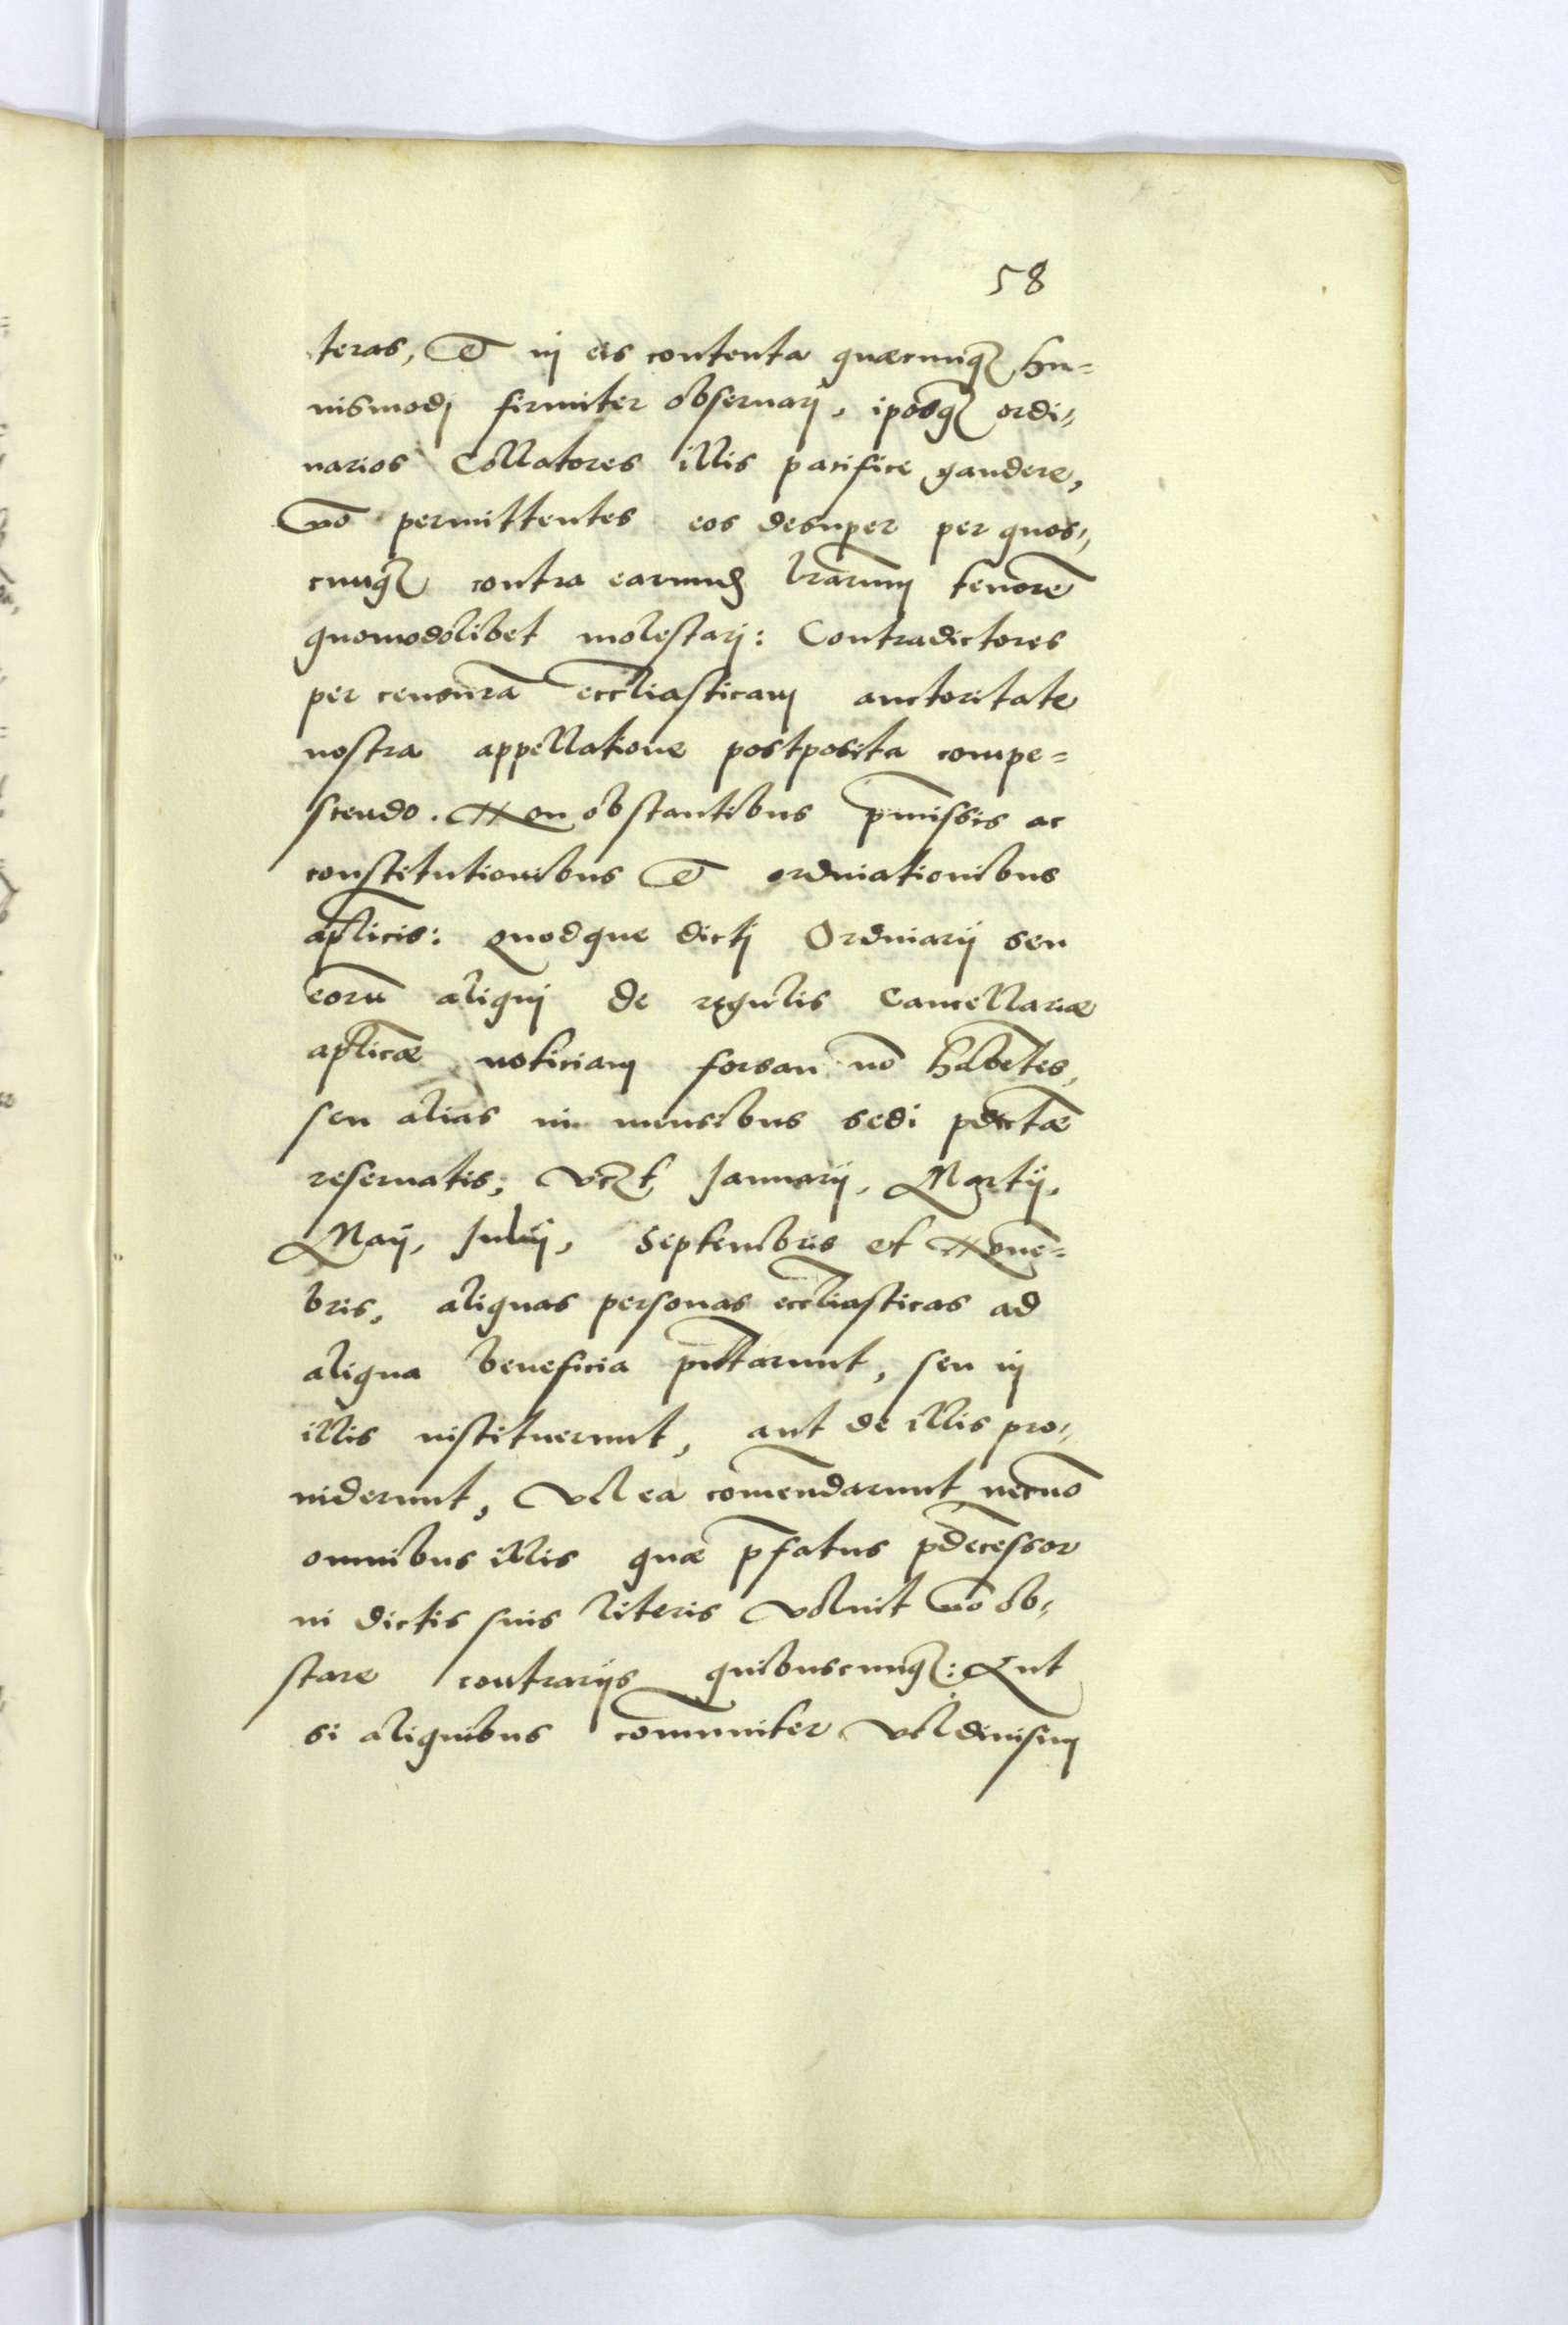 58
teras, et in eis contenta quæcunqȝ hu=
iusmodi firmiter obseruari, ipōsqȝ ordi=
narios Collatores illis pacifice gaudere,
nō permittentes eos desuper per quos=
cunqȝ contra earundȝ lr̄arum tenorē
quomodolibet molestari: Contradictores
per censurā eccl̄iasticam auctoritate
nostra appellatione postposita compe=
scendo. Non obstantibus p̄missis ac
constitutionibus et ordinationibus
apl̄icis: quodque dicti Ordinarij seu
eorū aliqui de regulis Cancellariæ
apl̄icæ noticiam forsan nō habētes,
seu alias in mensibus sedi p̄dictæ
reseruatis, vȝt Januarij, Martij,
Maij, Julij, Septembris et Nouē=
bris, aliquas personas eccl̄iasticas ad
aliqua beneficia pn̄tarunt, seu in
illis instituerunt, aut de illis pro=
uiderunt, vel ea com̄endarunt necnō
omnibus illis quæ p̄fatus p̄decessor
in dictis suis literis voluit nō ob=
stare contrarijs quibuscunqȝ: Aut
si aliquibus com̄uniter vel diuisim